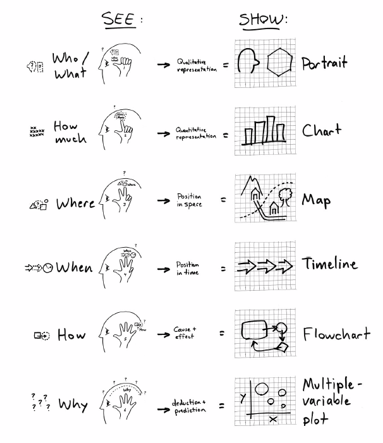 SEE: SHOW:
Who/ what → Qualitative representation = Portrait
How much → Quantitative representation = Chart
Where → Position in space = Map
When → Position in time = Timeline
How → Cause + effect = Flowchart
? ? ? ? Why → deduction + prediction = Y X Multiple-variable plot